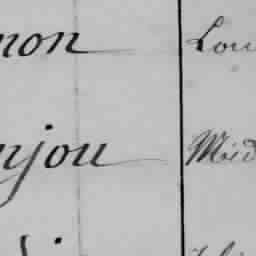 non Lou
njou Mid